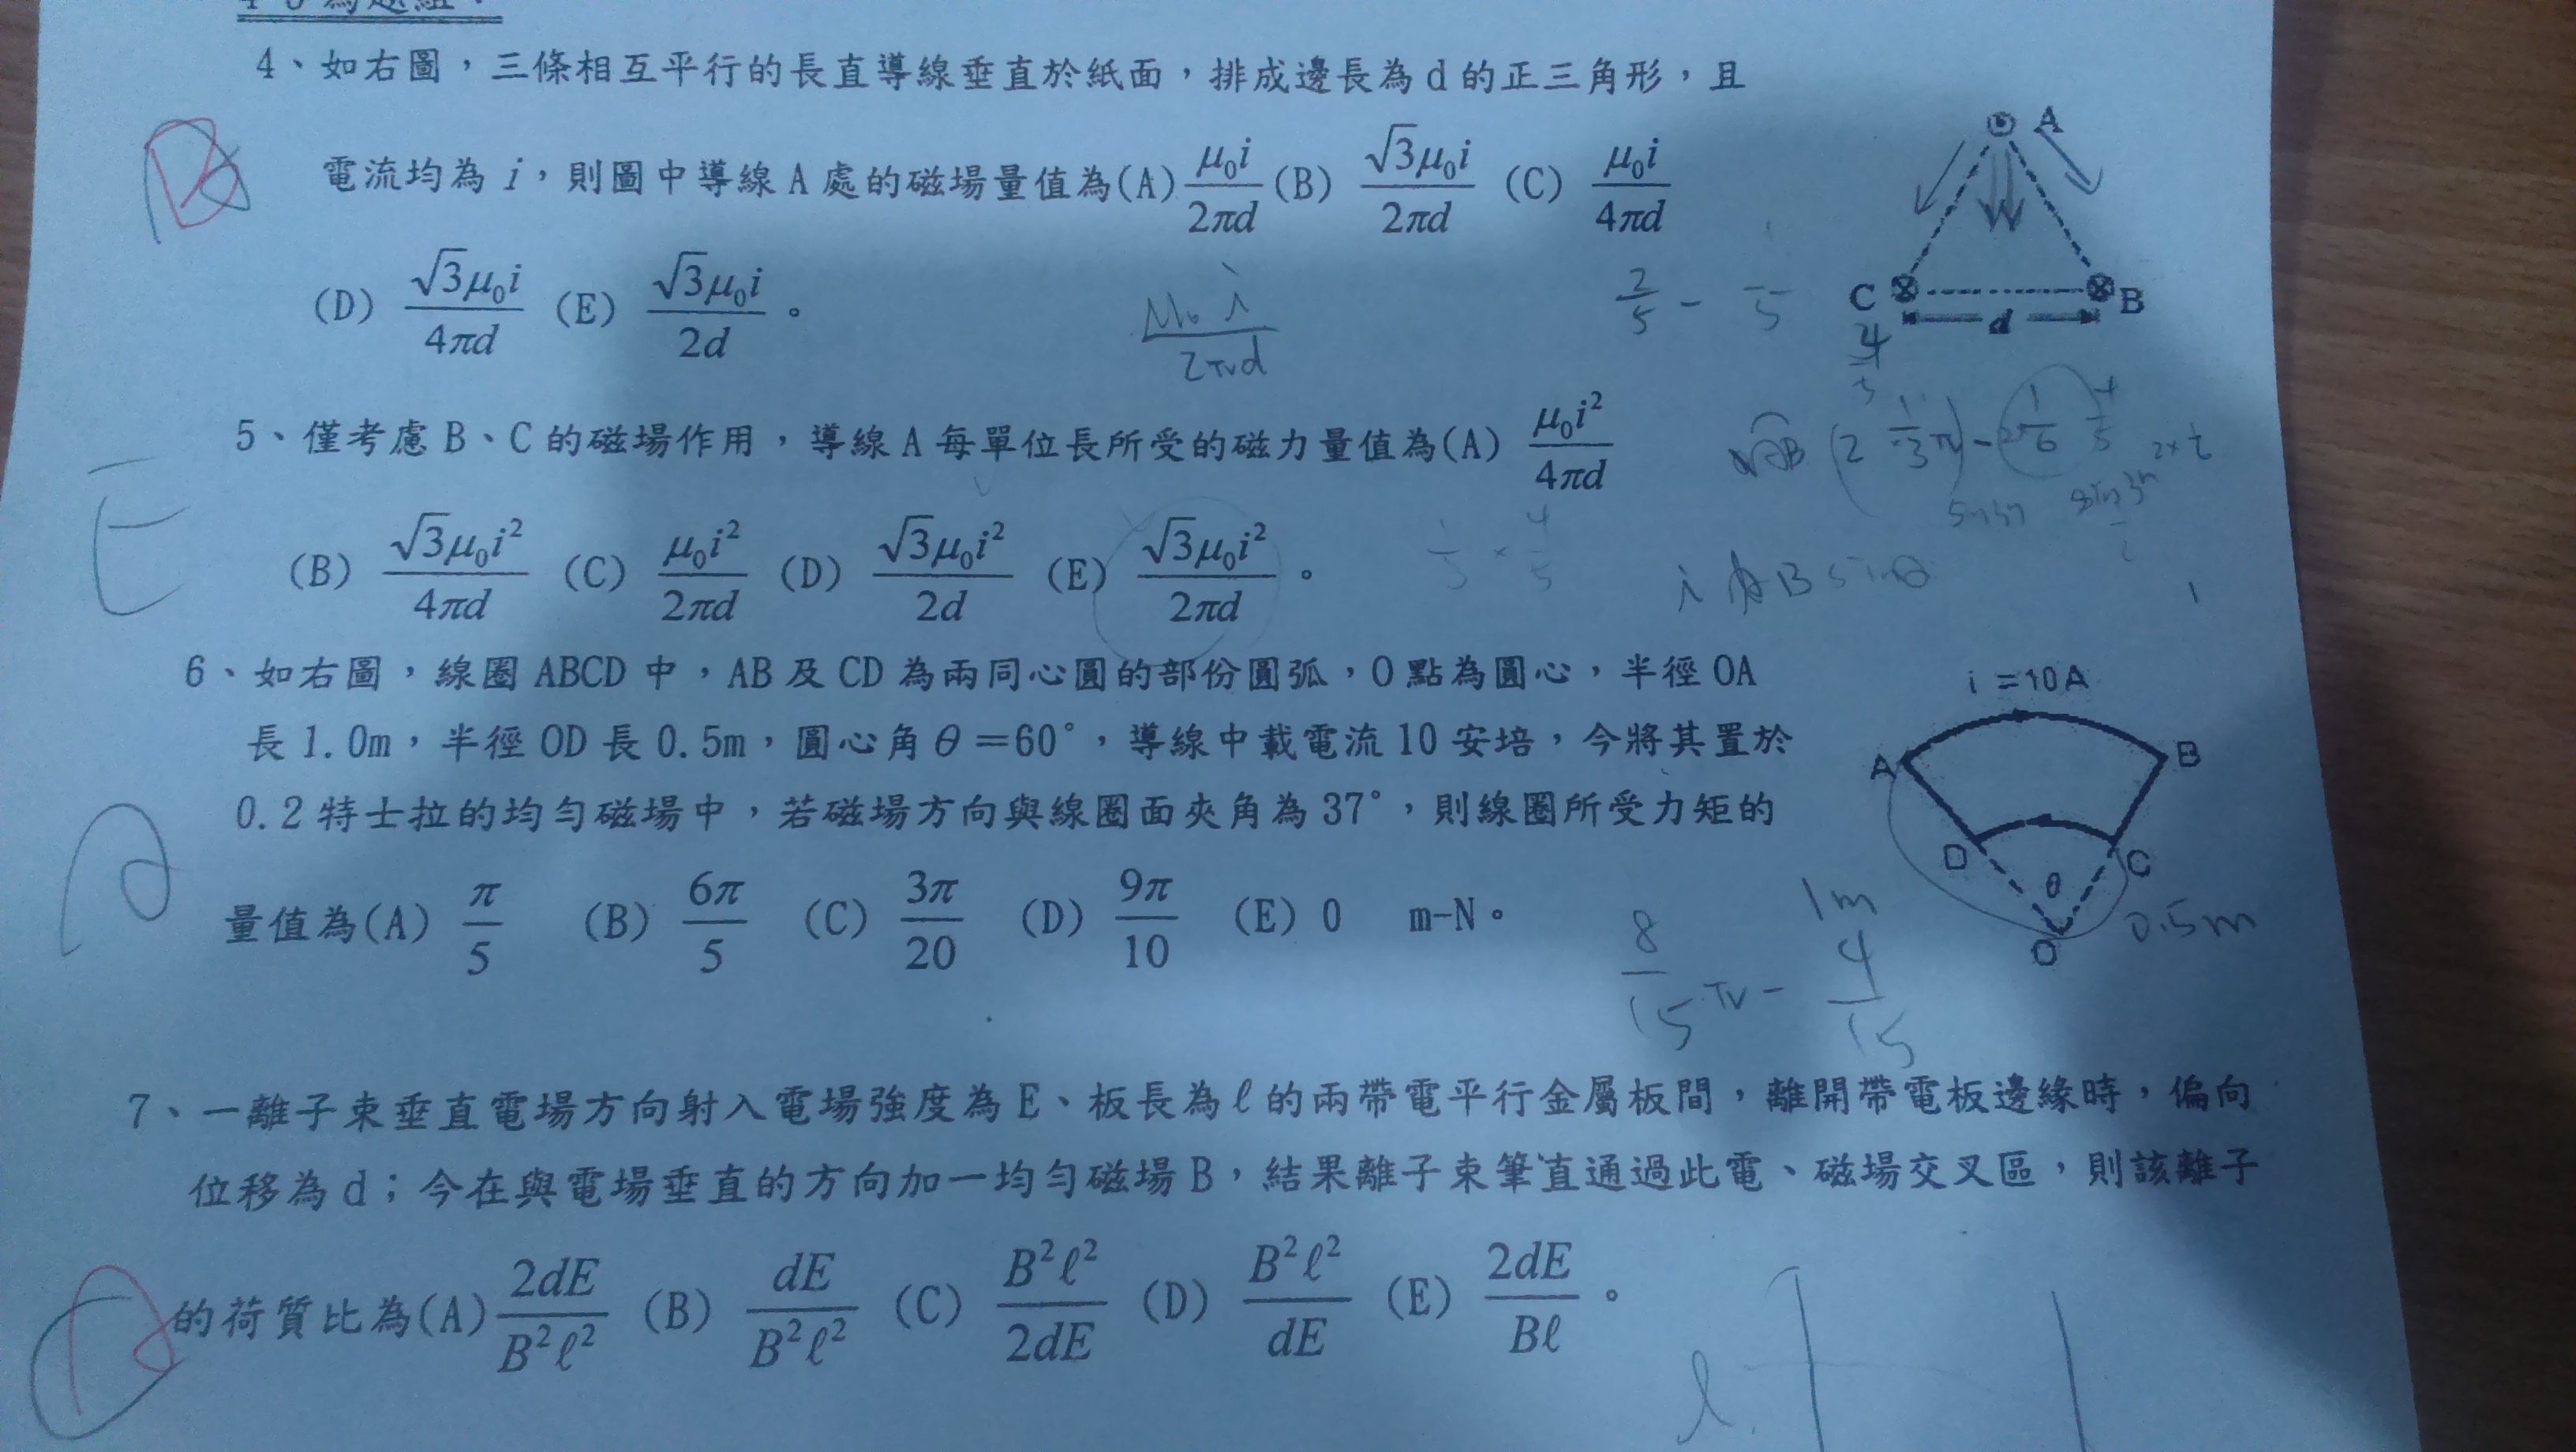 4-5為題組：
4、如右圖，三條相互平行的長直導線垂直於紙面，排成邊長為d的正三角形，且
電流均為 i，則圖中導線A處的磁場量值為(A) μ₀i/2πd (B) √3μ₀i/2πd (C) μ₀i/4πd
(D) √3μ₀i/4πd (E) √3μ₀i/2d 。
A
C B
d
μ₀ i/2πd
2/5 -
4/5
5、僅考慮B、C的磁場作用，導線A每單位長所受的磁力量值為(A) μ₀i²/4πd
(B) √3μ₀i²/4πd (C) μ₀i²/2πd (D) √3μ₀i²/2d (E) √3μ₀i²/2πd 。
E
B sinθ
6、如右圖，線圈ABCD中，AB及CD為兩同心圓的部份圓弧，O點為圓心，半徑OA
長1.0m，半徑OD長0.5m，圓心角θ＝60°，導線中載電流10安培，今將其置於
0.2特士拉的均勻磁場中，若磁場方向與線圈面夾角為37°，則線圈所受力矩的
量值為(A) π/5 (B) 6π/5 (C) 3π/20 (D) 9π/10 (E) 0 m-N。
i =10A
A B
D C
θ
O
1m
0.5m
8/15 π - 4/15
7、一離子束垂直電場方向射入電場強度為E、板長為ℓ的兩帶電平行金屬板間，離開帶電板邊緣時，偏向
位移為d；今在與電場垂直的方向加一均勻磁場B，結果離子束筆直通過此電、磁場交叉區，則該離子
的荷質比為(A) 2dE/B²ℓ² (B) dE/B²ℓ² (C) B²ℓ²/2dE (D) B²ℓ²/dE (E) 2dE/Bℓ 。
ℓ